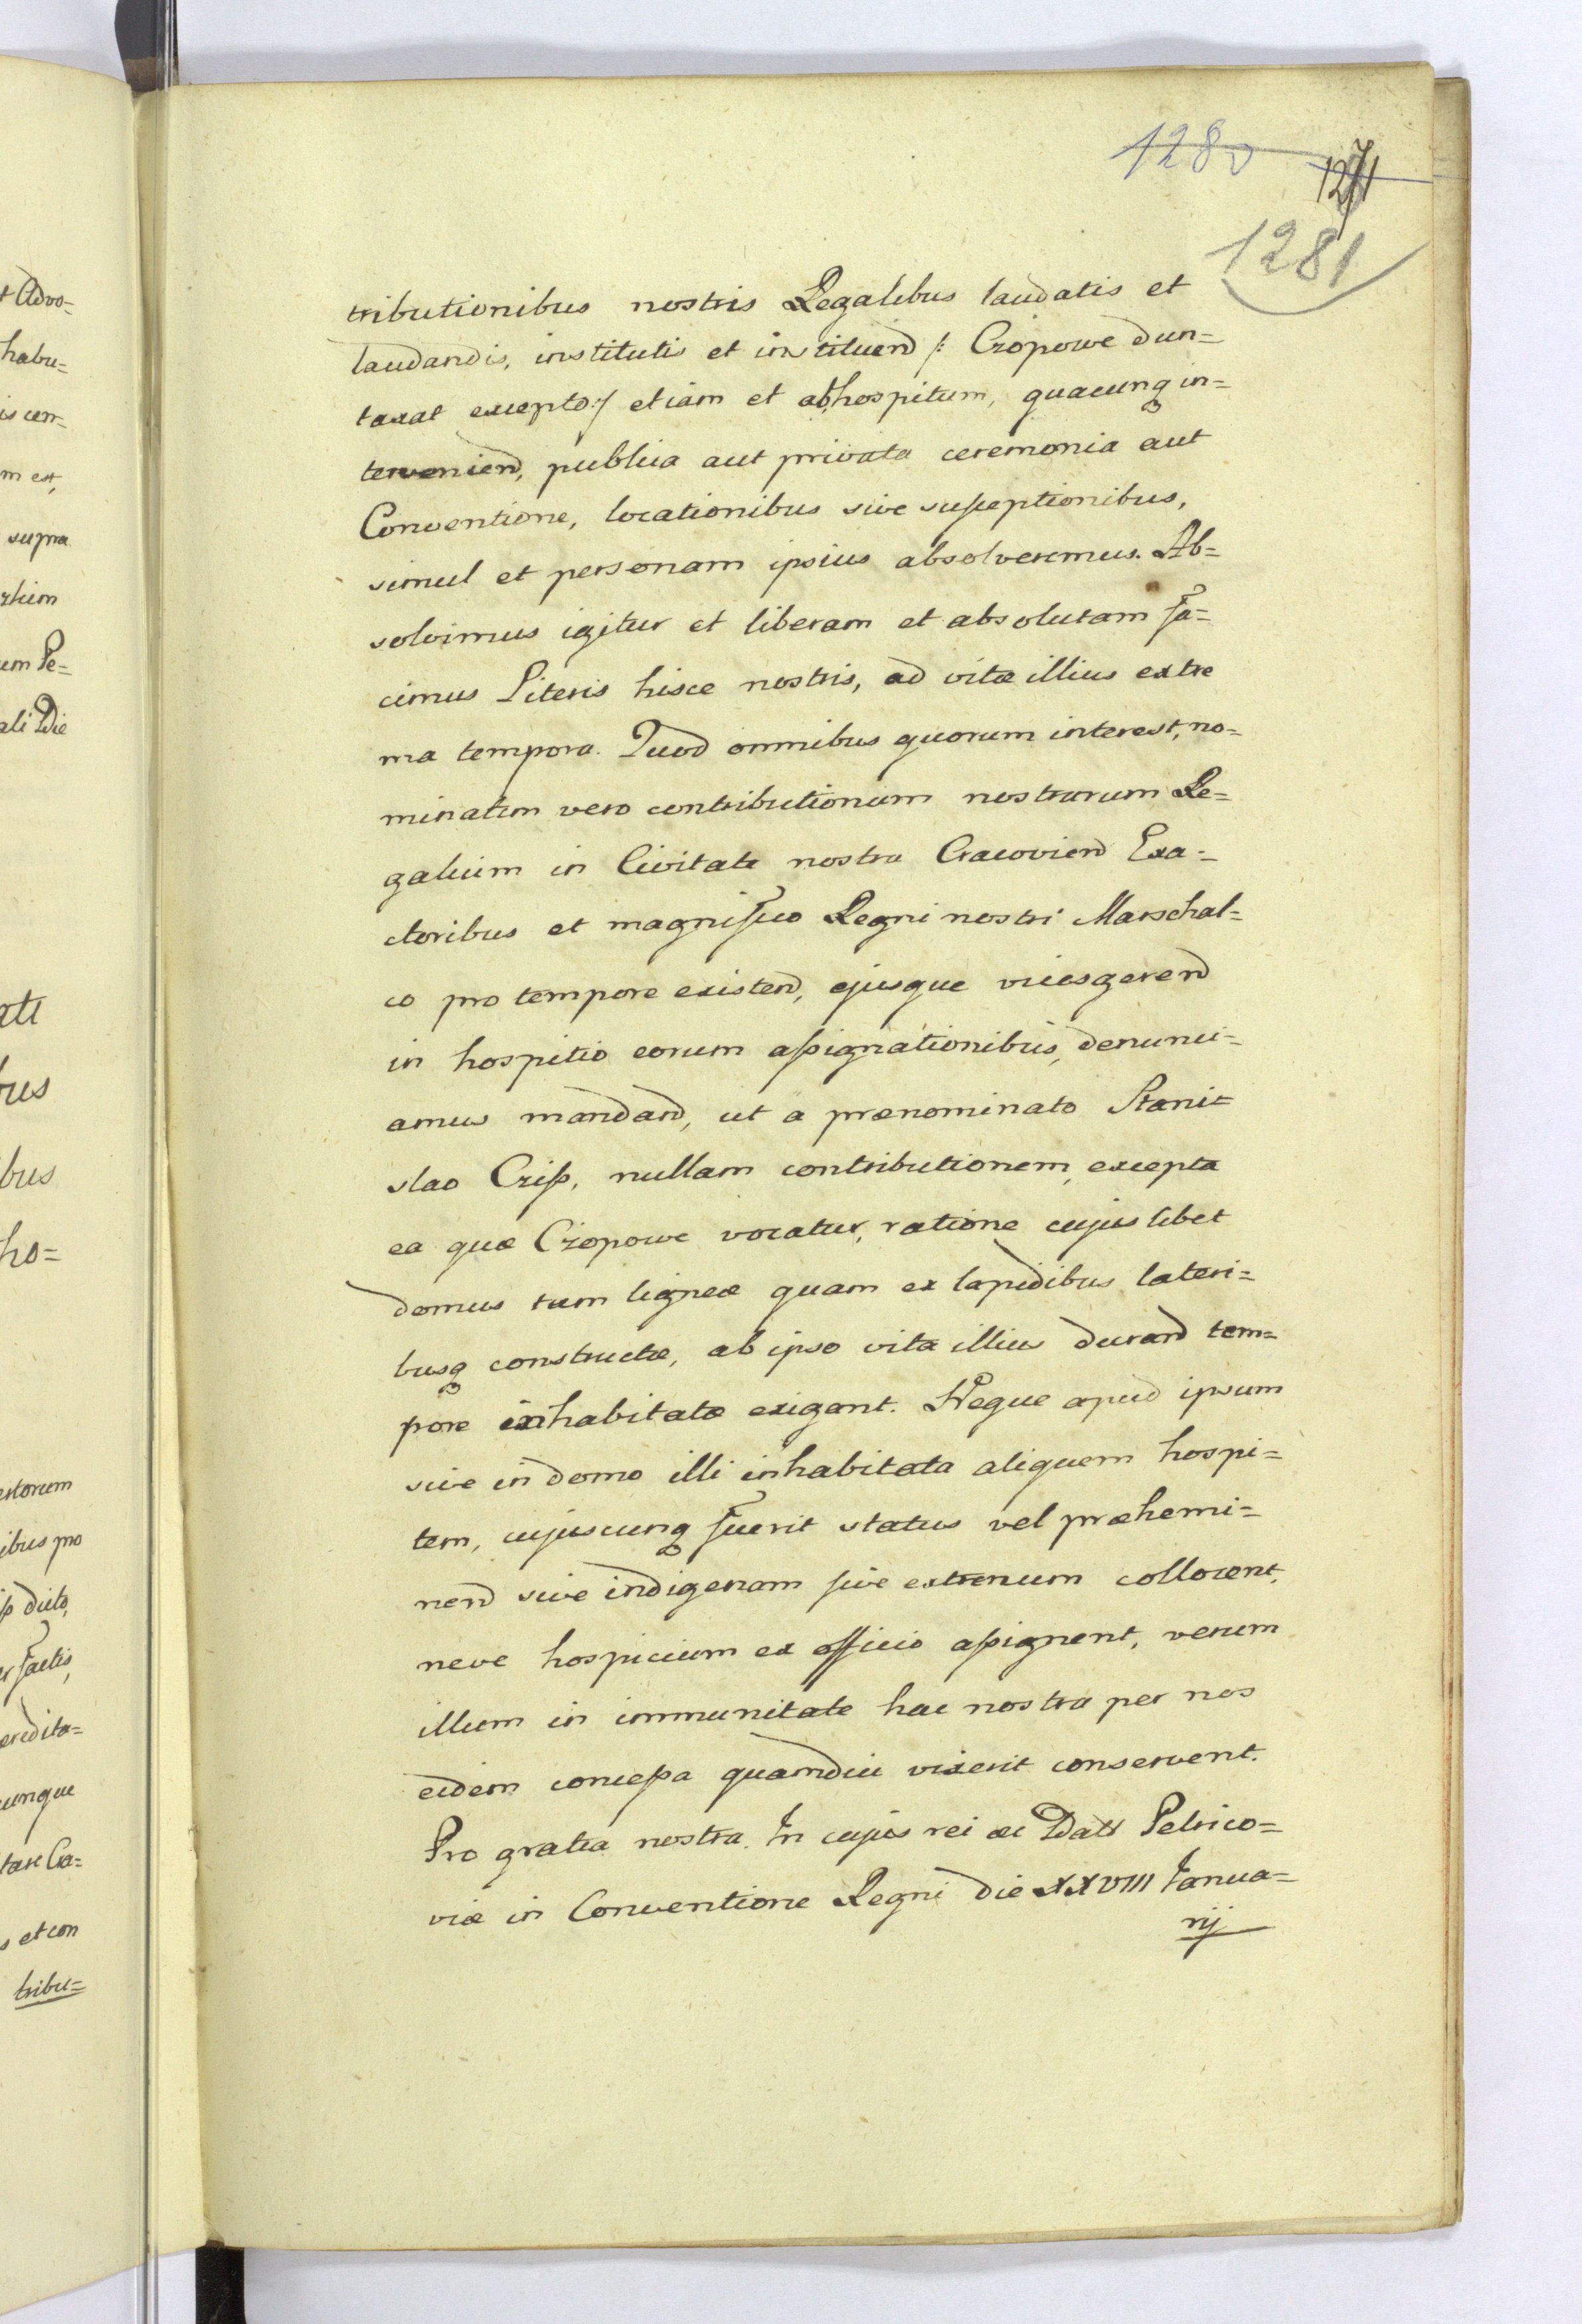 1280
1271
1281
tributionibus nostris Regalibus laudatis et
laudandis, institutis et instituend /: Czopowe dun=
taxat excepto :/ etiam et ab hospitum, quacunq in=
terveniend, publica aut privata ceremonia aut
Conventione, locationibus sive susceptionibus,
simul et personam ipsius absolveremus. Ab=
solvimus igitur et liberam et absolutam fa=
cimus Literis hisce nostris, ad vitæ illius extre
ma tempora. Quod omnibus quorum interest, no=
minatim vero contributionum nostrarum Re=
galium in Civitate nostra Cracoviend Exa=
ctoribus et magnifico Regni nostri Marschal=
co pro tempore existend, ejusque vicesgerend
in hospitio eorum assignationibus, denunci=
amus mandand, ut a prænominato Stani=
slao Czip, nullam contributionem, excepta
ea quæ Czopowe vocatur, ratione cujus libet
domus tum ligneæ quam ex lapidibus lateri=
busq constructæ, ab ipso vita illius durand tem=
pore inhabitatæ exigant. Neque apud ipsum
sive in domo illi inhabitata aliquem hospi=
tem, cujuscunq fuerit status vel præhemi=
nend sive indigenam sive externum collocent,
neve hospicium ex officio assignent, verum
illum in immunitate hac nostra per nos
eidem concessa quamdiu vixerit conservent.
Pro gratia nostra. In cujus rei &c Datt Petrico=
viæ in Conventione Regni die XXVIII Janua=
rij
t Advo=
habu=
is cen=
m est,
supra
um Pe=
ali Die
bus
ho=
ibus pro
dicto,
factis,
eredita=
cunque
tate Cra=
s et con
tribu=